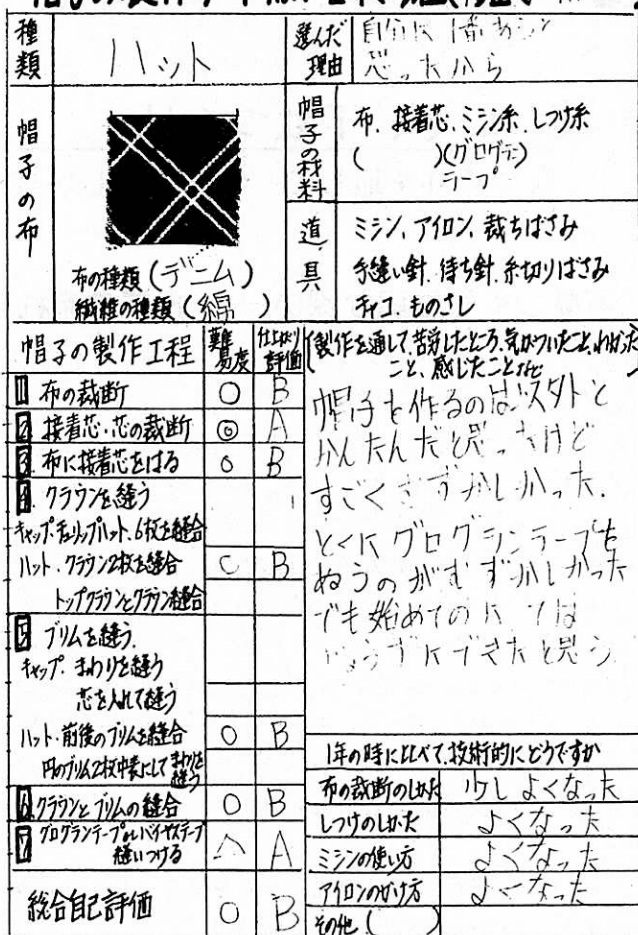 種類
ハット
選んだ理由
自分に1番
思ったから
帽子の布
布の種類(デニム)
繊維の種類(綿)
帽子の材料
布、接着芯、ミシン糸、しつけ糸
( )(グログランテープ)
道具
ミシン、アイロン、裁ちばさみ
手縫い針、待ち針、糸切りばさみ
チャコ、ものさし
帽子の製作工程
難易度
仕上がり評価
1 布の裁断 ○ B
2 接着芯・芯の裁断 ◎ A
3 布に接着芯をはる ○ B
4 クラウンを縫う
キャップ・チューリップハット・6枚を縫合
ハット・クラウン2枚を縫合 ○ B
トップクラウンとクラウン縫合
5 ブリムを縫う
キャップ・まわりを縫う
芯を入れて縫う
ハット・前後のブリムを縫合 ○ B
円のブリム2枚中表にしてまわりを縫う
6 クラウンとブリムの縫合 ○ B
7 グログランテープorバイヤステープ縫いつける △ A
総合自己評価 ○ B
(製作を通して、苦労したところ、気がついたこと、わかったこと、感じたことなど)
帽子を作るのは
かんたんだと思ったけど
すごく
とくにグログランテープを
ぬうのがむずかしかった
でも始めての
じょうずにできたと思う
1年の時に比べて、技術的にどうですか
布の裁断のしかた 少しよくなった
しつけのしかた よくなった
ミシンの使い方 よくなった
アイロンのかけ方 よくなった
その他( )